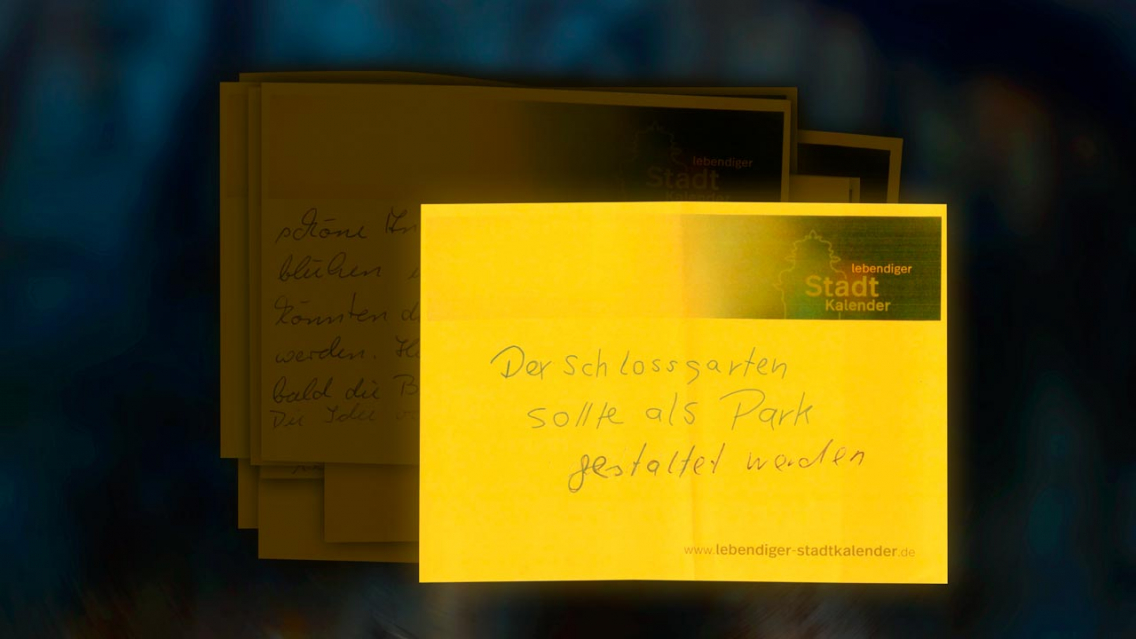 lebendiger
Stadt
schöne
blühen
könnten
werden.
bald die B
Die
lebendiger
Stadt
Kalender
Der Schlossgarten
sollte als Park
gestaltet werden
www.lebendiger-stadtkalender.de